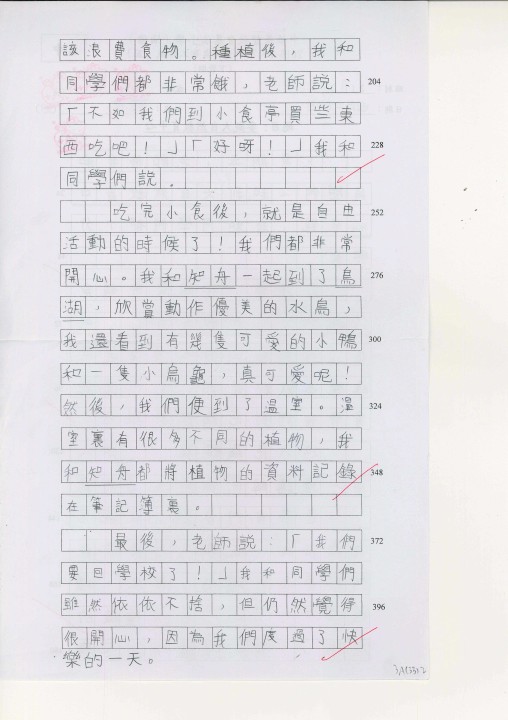 該浪費食物。種植後,我和
同學們都非常餓,老師說:
204
「不如我們到小食亭買些東
西吃吧!」「好呀!」我和
228
同學們說。
吃完小食後,就是自由
252
活動的時候了!我們都非常
開心。我和知舟一起到了鳥
276
湖,欣賞動作優美的水鳥,
我還看到有幾隻可愛的小鴨
300
和一隻小烏龜,真可愛呢!
然後,我們便到了溫室。溫
324
室裏有很多不同的植物,我
和知舟都將植物的資料記錄
348
在筆記簿裏。
最後,老師說:「我們
372
要回學校了!」我和同學們
雖然依依不捨,但仍然覺得
396
很開心,因為我們度過了快
樂的一天。